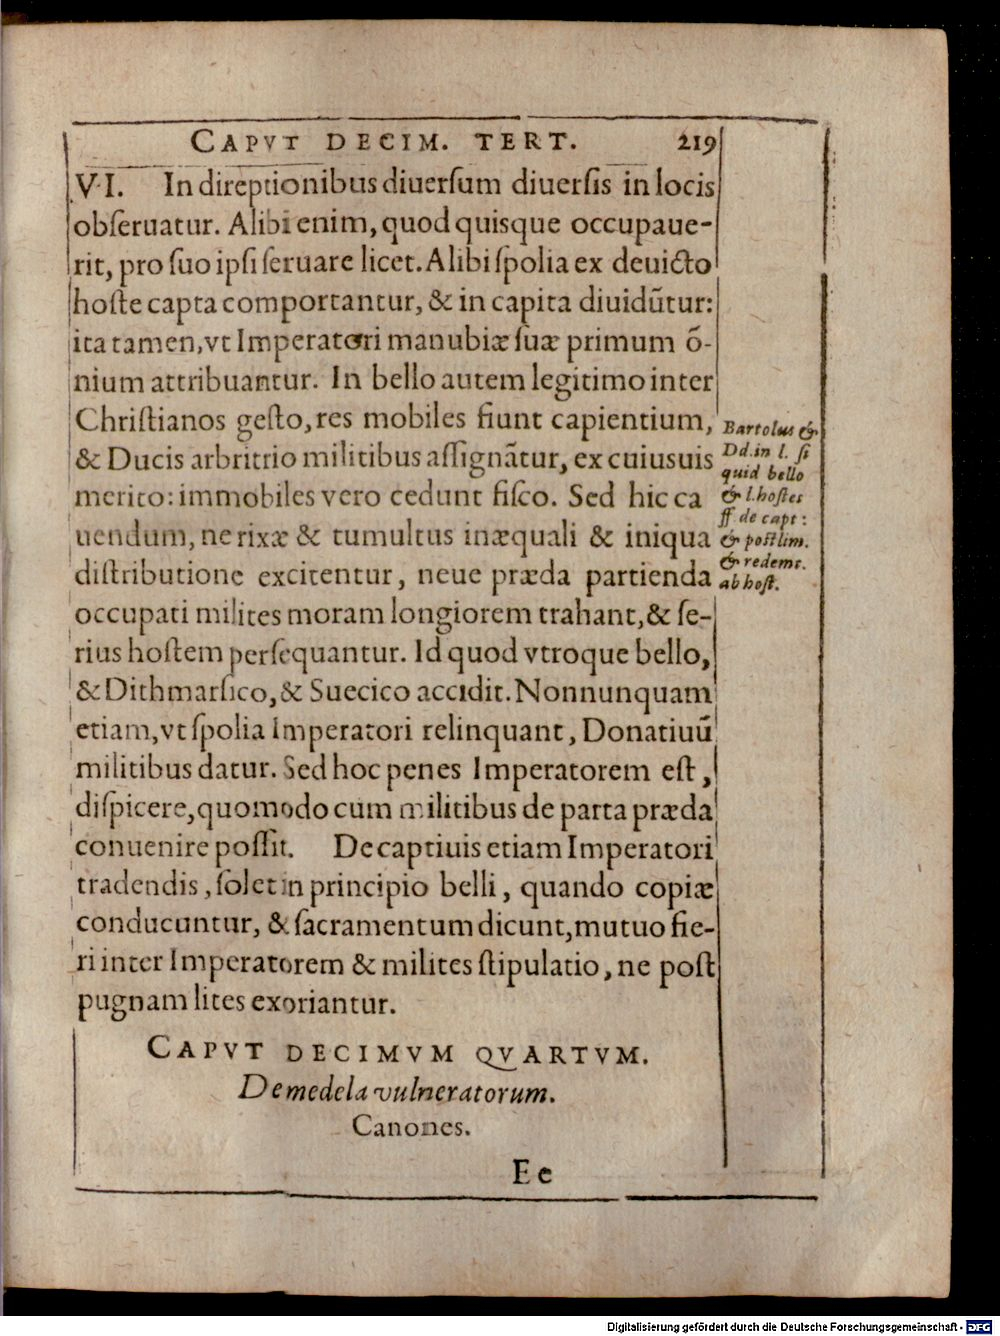 CAPVT DECIM. TERT. 219
VI. In direptionibus diuersum diuersis in locis
obseruatur. Alibi enim, quod quisque occupaue-
rit, pro suo ipsi seruare licet. Alibi spolia ex deuicto
hoste capta comportantur, & in capita diuidūtur:
ita tamen, vt Imperatori manubiæ suæ primum ō-
nium attribuantur. In bello autem legitimo inter
Christianos gesto, res mobiles fiunt capientium,
& Ducis arbritrio militibus assignātur, ex cuiusuis
merito: immobiles vero cedunt fisco. Sed hic ca
uendum, ne rixæ & tumultus inæquali & iniqua
distributione excitentur, neue præda partienda
occupati milites moram longiorem trahant, & se-
rius hostem persequantur. Id quod vtroque bello,
& Dithmarsico, & Suecico accidit. Nonnunquam
etiam, vt spolia Imperatori relinquant, Donatiuū
militibus datur. Sed hoc penes Imperatorem est,
dispicere, quomodo cum militibus de parta præda
conuenire possit. De captiuis etiam Imperatori
tradendis, solet in principio belli, quando copiæ
conducuntur, & sacramentum dicunt, mutuo fie-
ri inter Imperatorem & milites stipulatio, ne post
pugnam lites exoriantur.
Bartolus &
Dd. in l. si
quid bello
& l. hostes
ff de capt:
& postlim.
& redemt.
ab host.
CAPVT DECIMVM QVARTVM.
De medela vulneratorum.
Canones.
Ee
Digitalisierung gefördert durch die Deutsche Forschungsgemeinschaft - DFG